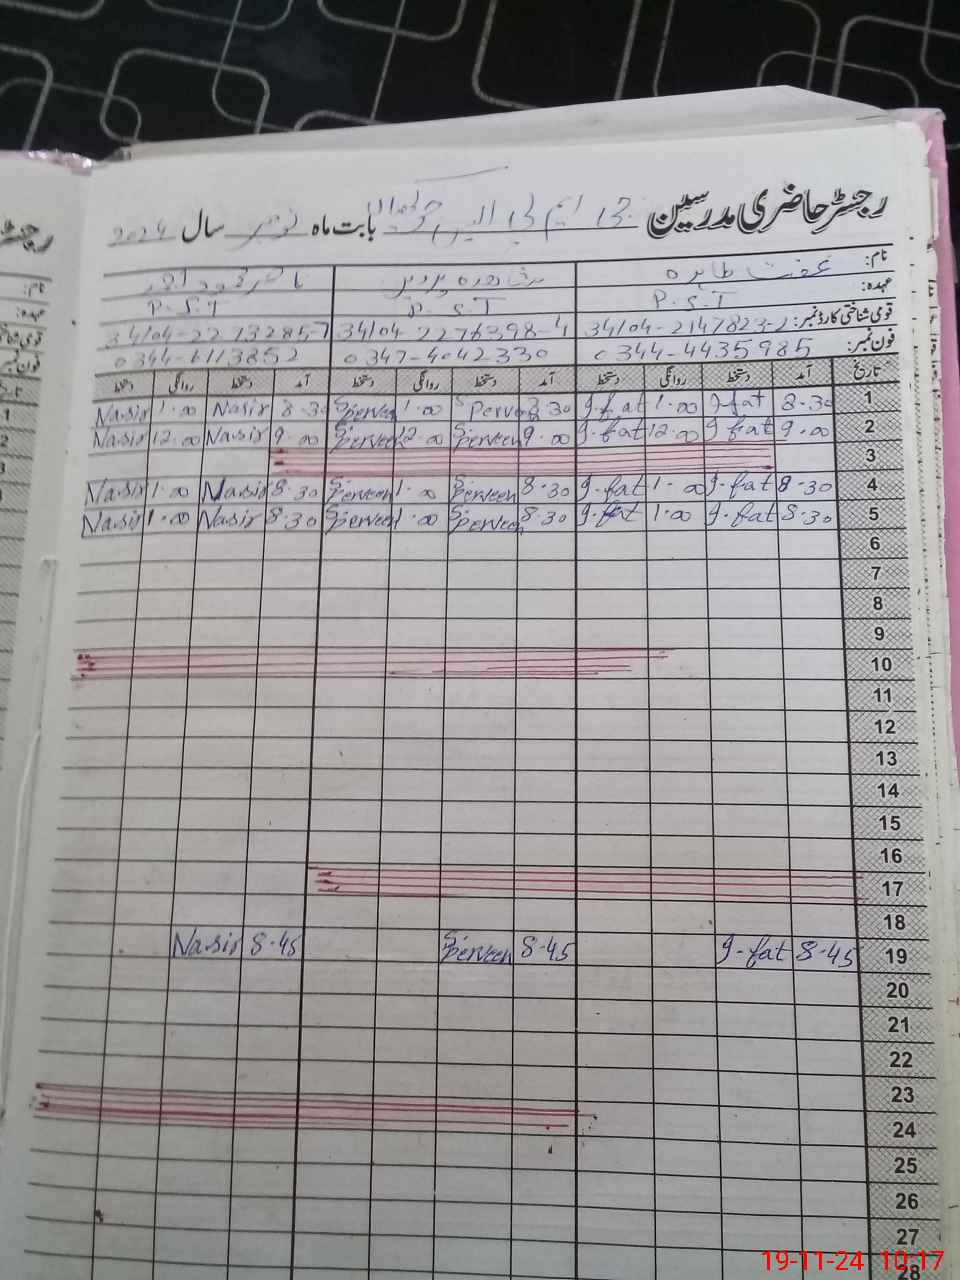 رجسٹر حاضری مدرسین جی ایم پی ایس بابت ماہ نومبر سال 2024
نام: عفت طاہرہ شاہدہ پروین
عہدہ: P.S.T P.S.T P.S.T
قومی شناختی کارڈ نمبر: 34104-2147823-2 34104-2276398-4 34104-2273285-7
فون نمبر: 0344-4435985 0347-4042330 0344-6113852
تاریخ آمد دستخط روانگی دستخط آمد دستخط روانگی دستخط آمد دستخط روانگی دستخط
1 8.30 9.fat 1.00 9.fat 8.30 S.Perveen 1.00 S.Perveen 8.30 Nasir 1.00 Nasir
2 9.00 9.fat 12.00 9.fat 9.00 S.Perveen 12.00 S.Perveen 9.00 Nasir 12.00 Nasir
3
4 8.30 9.fat 1.00 9.fat 8.30 S.Perveen 1.00 S.Perveen 8.30 Nasir 1.00 Nasir
5 8.30 9.fat 1.00 9.fat 8.30 S.Perveen 1.00 S.Perveen 8.30 Nasir 1.00 Nasir
6
7
8
9
10
11
12
13
14
15
16
17
18
19 8.45 9.fat 8.45 S.Perveen 8.45 Nasir
20
21
22
23
24
25
26
27
28
19-11-24 10:17